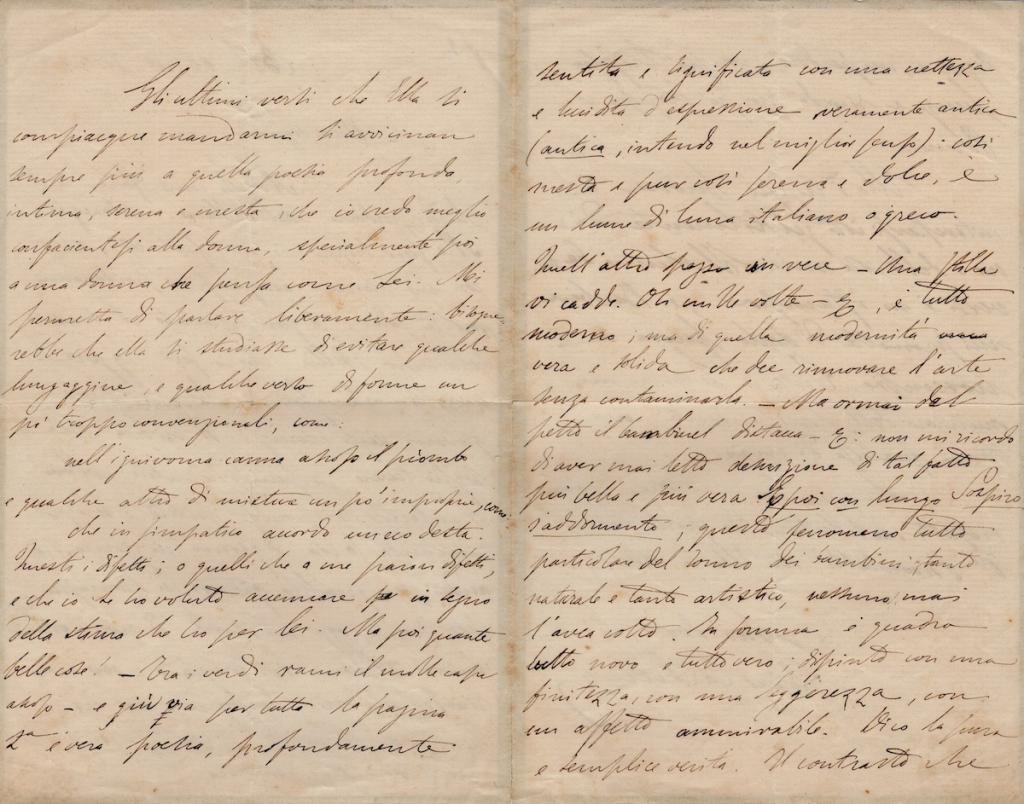 Gli ultimi versi che Ella si
compiacque mandarmi si avvicinan
sempre più a quella poesia profonda
intima, serena e mesta, che io credo meglio
confacientesi alla donna, specialmente poi
a una donna che pensa come Lei. Mi
permetta di parlare liberamente: bisogne-
rebbe che ella si studiasse di evitare qualche
lungaggine, e qualche verso di forme un
pò troppo convenzionali, come:
nell'ignivoma canna ascoso il piombo
e qualche altro di mistura un po' impropria, come
che in simpatico accordo un eco desta.
Questi i difetti; o quelli che a me paiono difetti,
e che io le ho voluto accennare in segno
della stima che ho per lei. Ma poi quante
belle cose! — Tra i verdi rami il molle capo
ascoso — e giù via per tutta la pagina
2ª è vera poesia, profondamente
sentita e significata con una nettezza
e lucidità d'espressione veramente antica
(antica, intendo nel miglior senso): così
mesta e pur così serena e dolce, è
un lume di luna italiano o greco.
Quell'altro pezzo in vece — Una stilla
vi cadde. Oh mille volte — è tutto
moderno; ma di quella modernità
vera e solida che dee rinnovare l'arte
senza contaminarla. — Ma ormai dal
petto il bambinel distacca — non mi ricordo
di aver mai letto descrizione di tal fatto
più bella e più vera E poi con lungo Sospiro
s'addormentò; questo fenomeno tutto
particolare del sonno dei bambini, tanto
naturale e tanto artistico, nessuno mai
l'avea colto. In somma è quadro
tutto novo e tutto vero; dipinto con una
finitezza, con una leggerezza, con
un affetto ammirabile. Dico la pura
e semplice verità. Il contrasto che